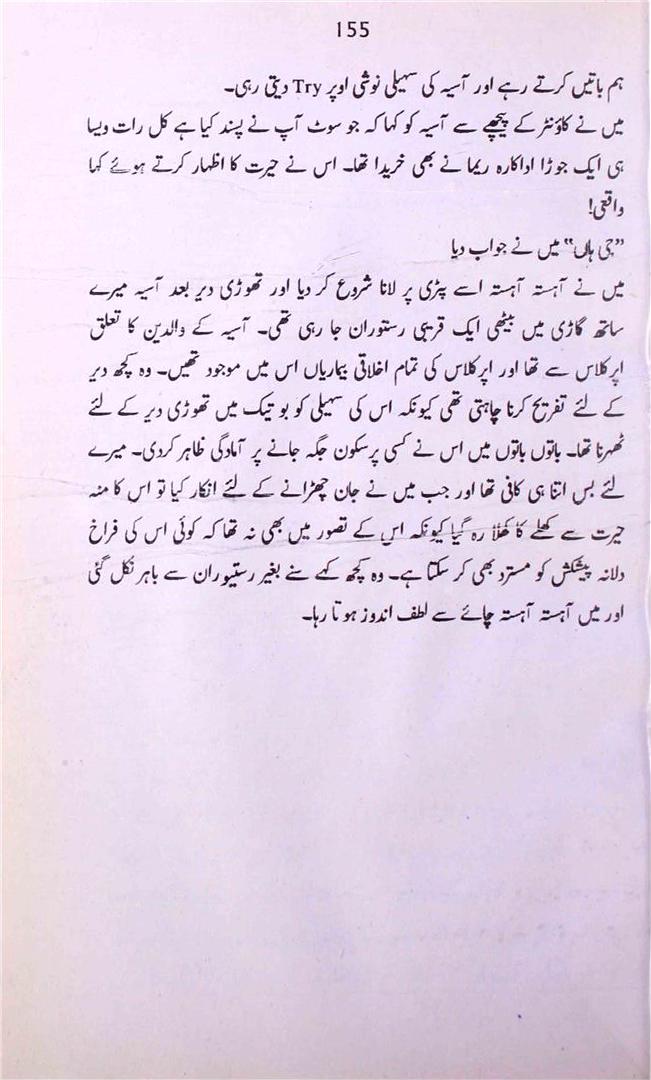 155
ہم باتیں کرتے رہے اور آسیہ کی سہیلی نوشی اوپر Try دیتی رہی۔
میں نے کاؤنٹر کے پیچھے سے آسیہ کو کہا کہ جو سوٹ آپ نے پسند کیا ہے کل رات ویسا
ہی ایک جوڑا اداکارہ ریما نے بھی خریدا تھا۔ اس نے حیرت کا اظہار کرتے ہوئے کہا
واقعی!
”جی ہاں“ میں نے جواب دیا
میں نے آہستہ آہستہ اسے پٹری پر لانا شروع کر دیا اور تھوڑی دیر بعد آسیہ میرے
ساتھ گاڑی میں بیٹھی ایک قریبی رستوران جا رہی تھی۔ آسیہ کے والدین کا تعلق
اپر کلاس سے تھا اور اپر کلاس کی تمام اخلاقی بیماریاں اس میں موجود تھیں۔ وہ کچھ دیر
کے لئے تفریح کرنا چاہتی تھی کیونکہ اس کی سہیلی کو بوتیک میں تھوڑی دیر کے لئے
ٹھہرنا تھا۔ باتوں باتوں میں اس نے کسی پرسکون جگہ جانے پر آمادگی ظاہر کردی۔ میرے
لئے بس اتنا ہی کافی تھا اور جب میں نے جان چھڑانے کے لئے انکار کیا تو اس کا منہ
حیرت سے کھلے کا کھلا رہ گیا کیونکہ اس کے تصور میں بھی نہ تھا کہ کوئی اس کی فراخ
دلانہ پیشکش کو مسترد بھی کر سکتا ہے۔ وہ کچھ کہے سنے بغیر رستیوران سے باہر نکل گئی
اور میں آہستہ آہستہ چائے سے لطف اندوز ہوتا رہا۔